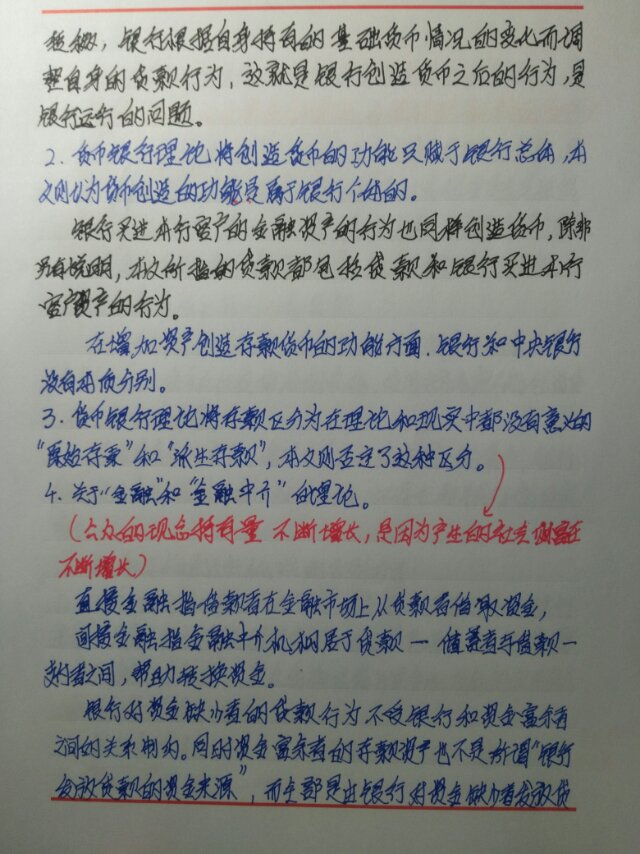 接触，银行根据自身持有的基础货币情况的变化而调
整自身的贷款行为，这就是银行创造货币之后的行为，是
银行运行的问题。
2. 货币银行理论将创造货币的功能只赋于银行总体，本
文则认为货币创造的功能是属于银行个体的。
银行买进本行客户的金融资产的行为也同样创造货币，除非
另有说明，本文所指的贷款都包括贷款和银行买进本行
客户资产的行为。
在增加资产创造存款货币的功能方面，银行和中央银行
没有本质分别。
3. 货币银行理论将存款区分为在理论和现实中都没有意义的
“原始存款”和“派生存款”，本文则否定了这种区分。
4. 关于“金融”和“金融中介”的理论。
（公众的现金持有量 不断增长，是因为产生的社会财富在
不断增长）
直接金融指借款者在金融市场上从贷款者借取资金，
间接金融指金融中介机构居于贷款—储蓄者和借款—
支出者之间，帮助转换资金。
银行对资金缺少者的贷款行为不受银行和资金富余者
之间的关系制约。同时资金富余者的存款资产也不是所谓“银行
发放贷款的资金来源”，而全部是由银行对资金缺少者发放贷